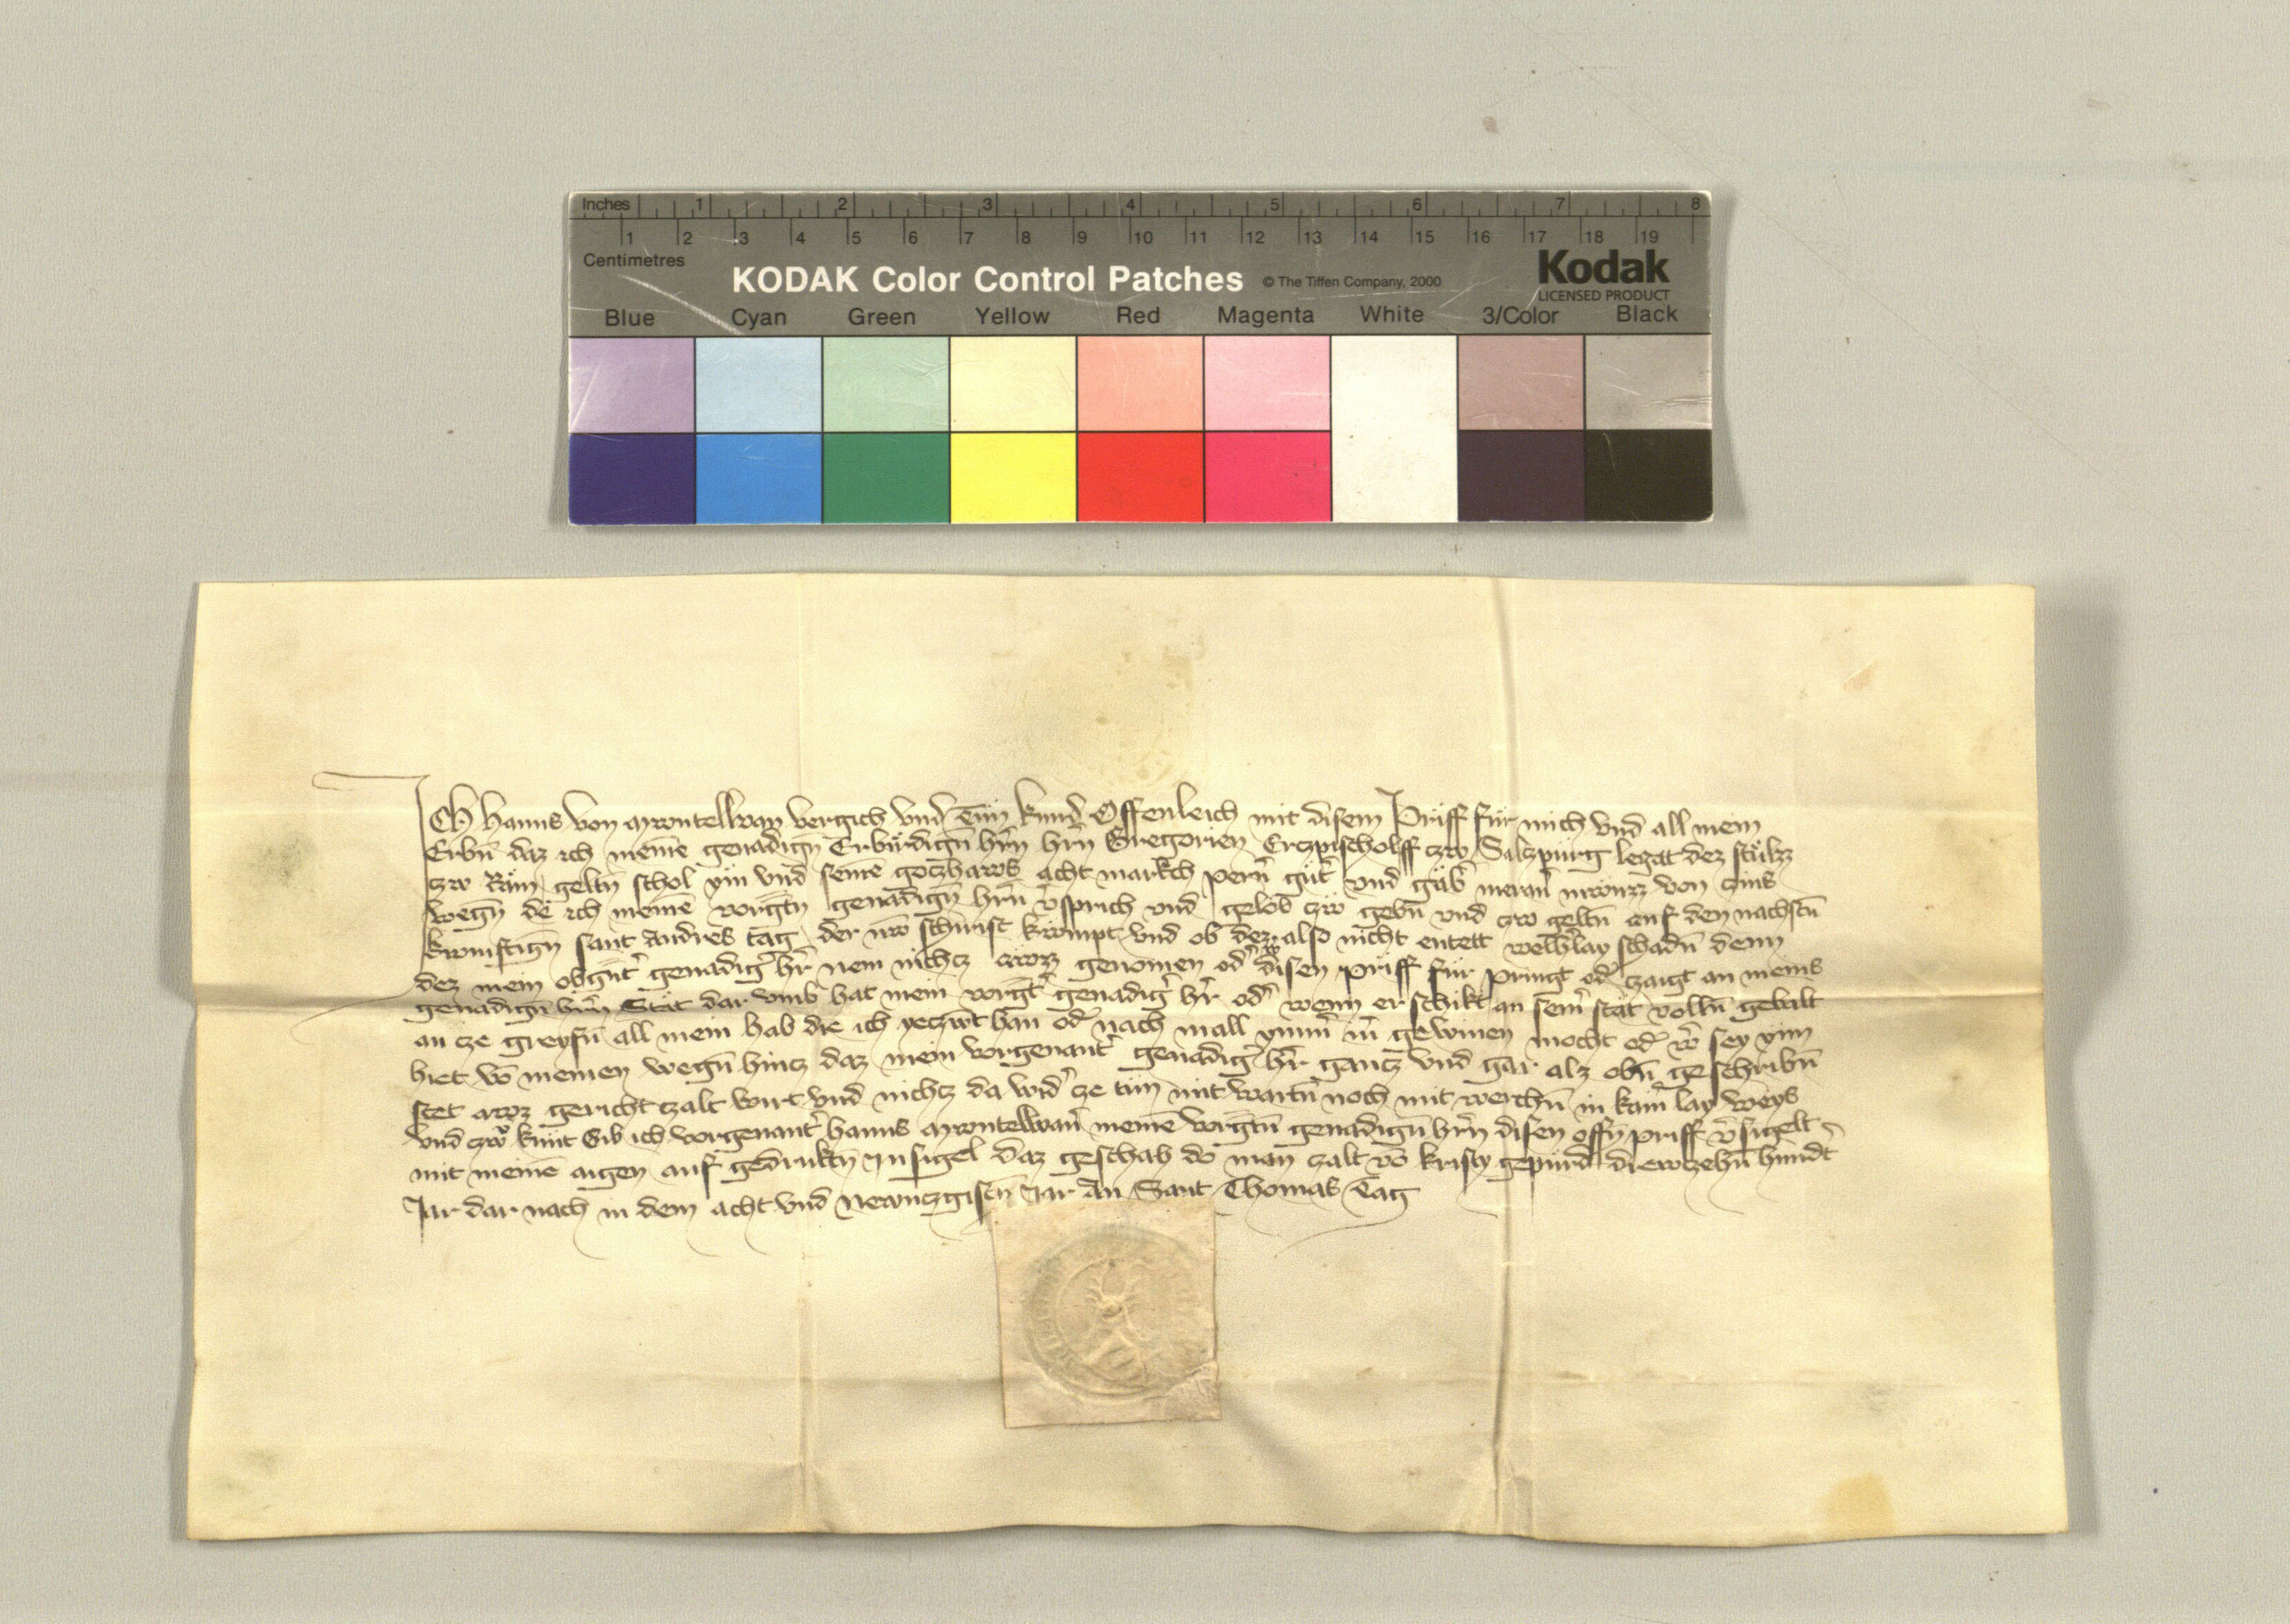 Inches 1 2 3 4 5 6 7 8
1 2 3 4 5 6 7 8 9 10 11 12 13 14 15 16 17 18 19
Centimetres
KODAK Color Control Patches © The Tiffen Company, 2000 Kodak
LICENSED PRODUCT
Blue Cyan Green Yellow Red Magenta White 3/Color Black
Ich Hanns von Montellban vergich vnd tün kund Offenleich mit disem Priff für mich vnd all mein
Erbn̄ daz ich meinē genadign̄ Erbirdign̄ hr̄n hr̄n Gregorien Erczpischolff czw Salczpurg legat dez stülcz
czw Räm geltn̄ schol ym vnd seinē goczhaws acht markch pern̄ gut̄ vnd gäb̄ meran̄ münzz von zins
wegn̄ de ich meinē vorgn̄tn genadign̄ hr̄n v̄sprich vnd gelob czw gebn̄ vnd czw geltn̄ auf den nachstn̄
kwmftign̄ sant Andres tag der nw̄ schirist kwmpt vnd ob dez also nicht entett welh̄lay schadn̄ denn
dez mein obgn̄t̄ genadiḡ hr̄ nem nichcz awzz genomen od̄ w̄ disen priff für pringt od̄ czaigt an meins
genadign̄ hr̄n Stät dar vmb hat mein vorgn̄t̄ genadiḡ hr̄ od̄ wenn er schikt an sein̄ stat volln̄ gebalt
an cze greyfn̄ all mein hab die ich yeczwt han od̄ nach mall ymm̄ m̄ gewinen mocht od̄ w̄ sey ym
hiet vō meinen wegn̄ hincz daz mein vorgenant̄ genadiḡ hr̄ gancz vnd gar alz obn̄ geschribn̄
stet awz gericht czalt wirt vnd nichcz da wid̄ cze tün mit wartn̄ noch mit werchn̄ in kain̄ lay weys
vnd czw̄ künt Gib ich vorgenant̄ hanns Montellban̄ meinē vorgn̄tn̄ genadign̄ hr̄n disen offn̄ priff v̄sigelt
mit meinē aigen auf gedruktn̄ Insigel daz geschah do man czalt vō kristy gepürd drewczehn̄ hundt̄
Jar dar nach in dem acht vnd newnczgistn̄ Jar An Sant Thomas Tag